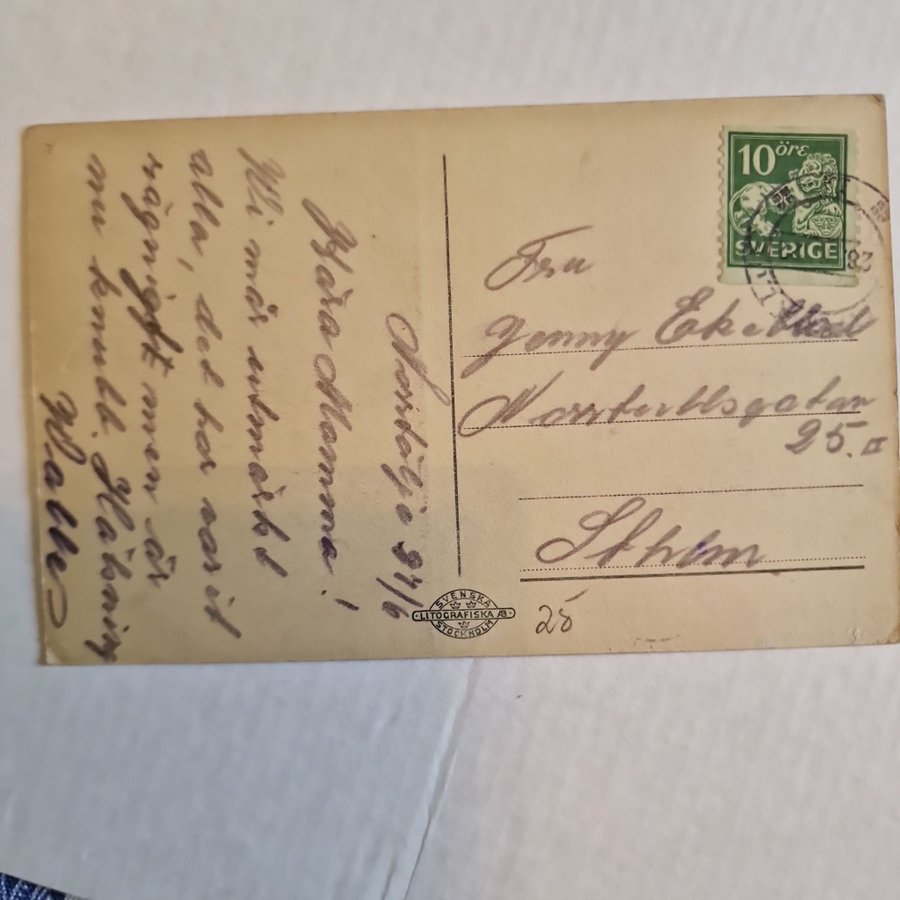 Norrtälje 27/6
Kära Mamma!
Vi mår utmärkt
alla, det har varit
rägnigt men är
nu knutt. Hälsning
Walle
Fru
Jenny Ekeblad
Norrtullsgatan
25. II
Sthlm.
10 öre
SVERIGE
28
SVENSKA
LITOGRAFISKA AB
STOCKHOLM
25